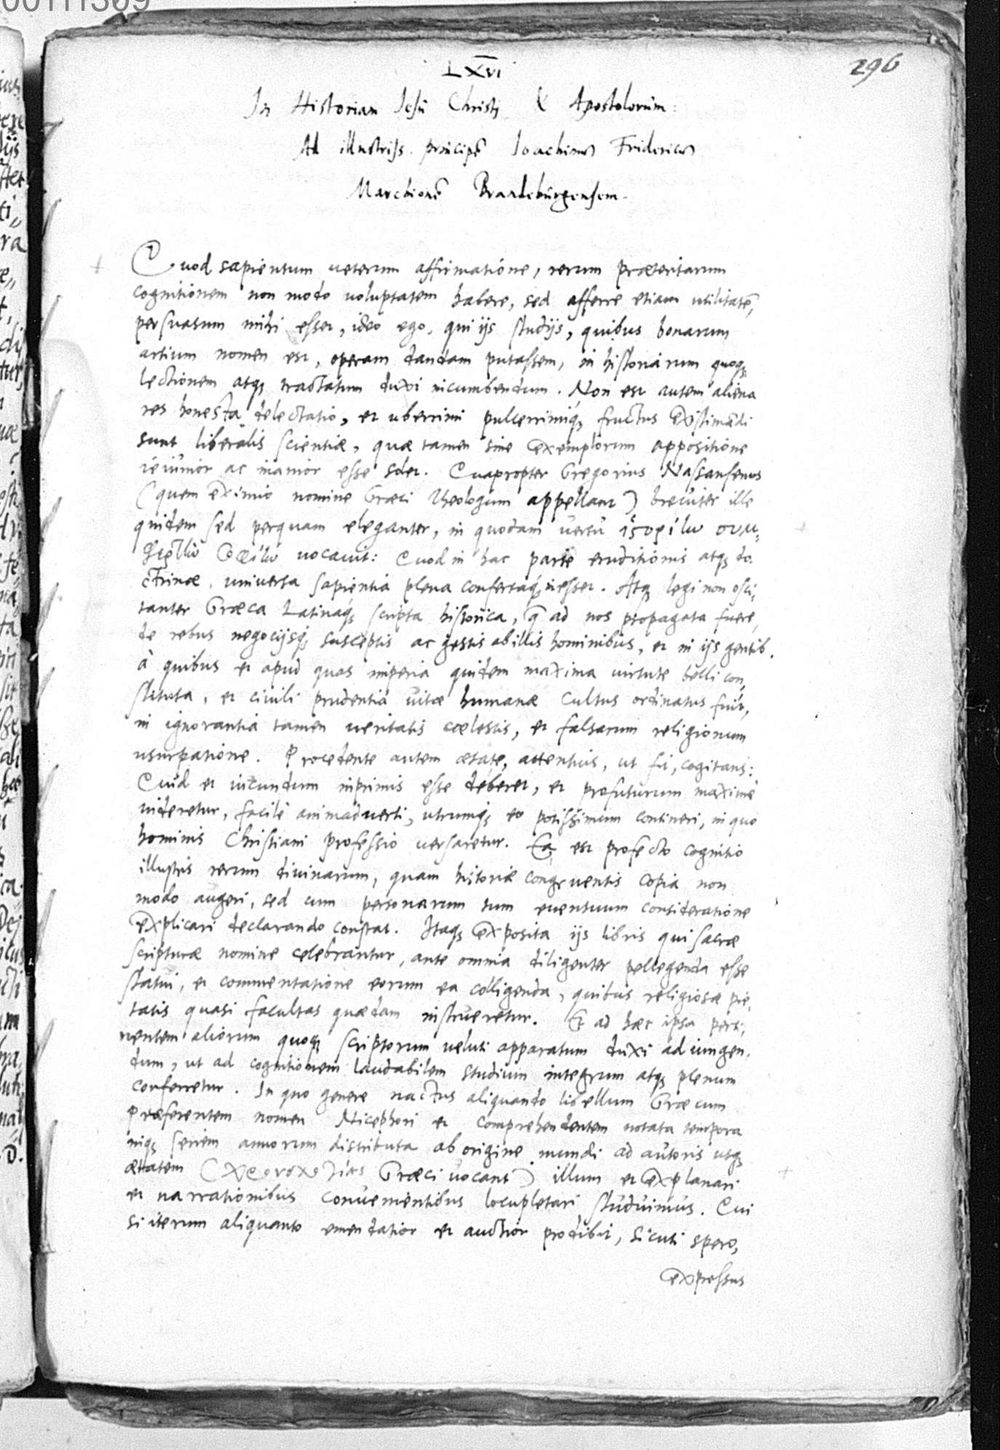 00111309
296
LXVI
In Historiam Jesu Christi & Apostolorum:
Ad illustriss. principẽ Joachimum Fridericũ
Marchionẽ Brandeburgensem.
Quod sapientum veterum affirmatione, rerum præteritarum
cognitionem non modo voluptatem habere, sed afferre etiam utilitatẽ,
persuasum mihi esset, ideo ego, qui ijs studijs, quibus bonarum
artium nomen est, operam dandam putassem, in historiarum quoq;
lectionem atq; tractatum duxi incumbendum. Non est autem aliena
res honesta delectatio, et uberrimi pulcerrimiq; fructus existimãdi
sunt liberalis scientiæ, quæ tamen sine exemplorum appositione
ieiunior ac inanior esse solet. Quapropter Gregorius Nazansenus
(quem eximio nomine Græci Theologum appellant) breviter ille
quidem sed perquam eleganter, in quodam versu ἱστορίαν συμ-
vocavit: Quod in hac parte eruditionis atq; do-
ctrinæ, universa sapientia plena confertaq; inesset. Atq; legi non osci-
tanter Græca Latinaq; scripta historica, q̃ ad nos propagata fuere,
de rebus negocijsq; susceptis ac gestis ab illis hominibus, et in ijs gentib.
à quibus et apud quas imperia quidem maxima virtute belli con-
stituta, et civili prudentia vitæ humanæ cultus ordinatus fuit,
in ignorantia tamen veritatis cœlestis, et falsarum religionum
usurpatione. Procedente autem ætate, attentius, ut fit, cogitans:
Quid et iucundum inprimis esse deberet, et profuturum maximè
videretur, facilè animadverti, utrumq; eo potissimum contineri, in quo
hominis Christiani professio versaretur. Ea est profecto cognitio
illustris rerum divinarum, quam historiæ congruentis copia non
modo augeri, sed cum personarum tum eventuum consideratione
explicari declarando constat. Itaq; exposita ijs libris qui sacræ
scripturæ nomine celebrantur, ante omnia diligenter pellegenda esse
statui, et commentatione eorum ea colligenda, quibus religiosæ pie-
tatis quasi facultas quædam instrueretur. Et ad hæc ipsa perti-
nentem aliorum quoq; scriptorum veluti apparatum duxi adiungen-
dum, ut ad cognitionem laudabilem studium integrum atq; plenum
conferretur. In quo genere nactus aliquando libellum Græcum
præferentem nomen Nicephori et comprehendentem notata tempora
inq; seriem annorum distributa ab origine mundi ad autoris usq;
ætatem (χρονολογίας Græci vocant) illum et explanari
et narrationibus convenientibus locupletari studuimus. Qui
si iterum aliquanto emendatior et auctior prodibit, sicuti spero,
expressus